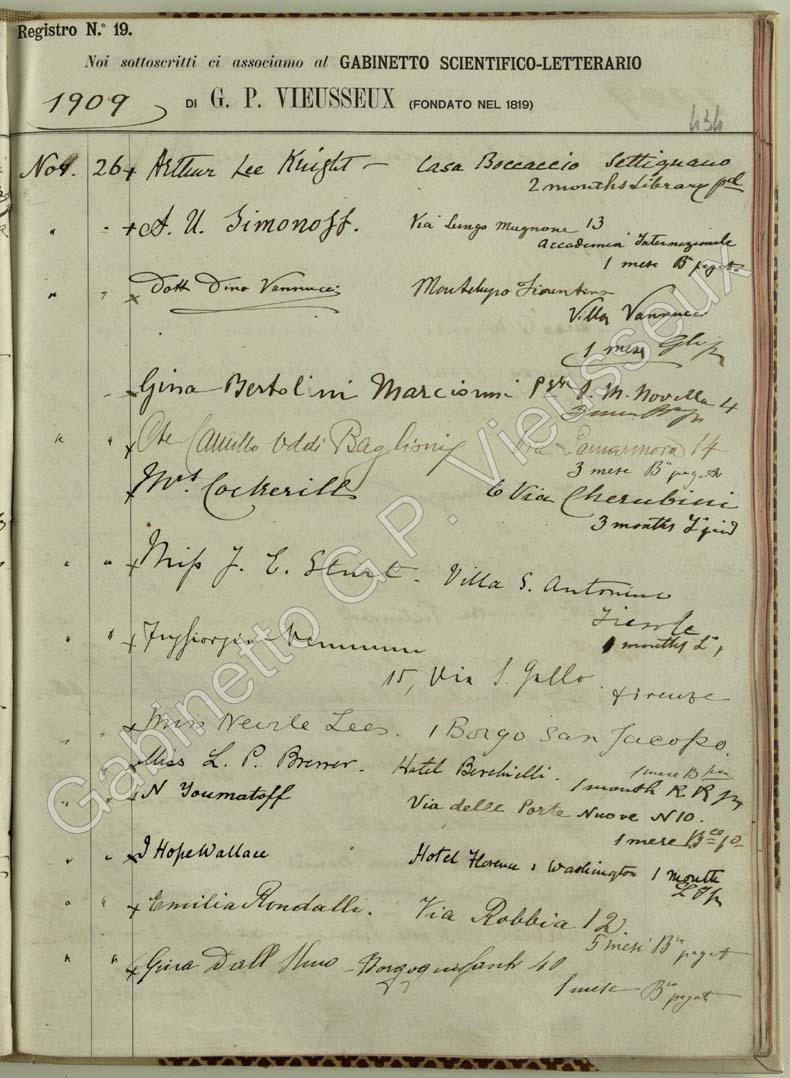 Registro N.º 19.
Noi sottoscritti ci associamo al GABINETTO SCIENTIFICO-LETTERARIO
1909 DI G. P. VIEUSSEUX (FONDATO NEL 1819)
434
Nov. 26 + Arthur Lee Knight - Casa Boccaccio Settignano
2 months Library pd
" " + A. U. Simonoff. Via Lungo Mugnone 13
Accademia Internazionale
1 mese Bco pagato
" " x Dott Dino Vannucci Montelupo Fiorentino
Villa Vannucci
1 mese
" x Gina Bertolini Marcionni Pza S. M. Novella 4
" " x Cte Camillo Oddi Baglioni Via Lamarmora 14
3 mese Bco pagato
x Mrs Cockerill 6 Via Cherubini
3 months Ly paid
" " x Miss J. E. Sturt - Villa S. Antonino
Fiesole
1 months Ly
" " x
15, Via S. Gallo Firenze
" x Miss Neerle Lees. 1 Borgo San Jacopo.
1 mese Bco
" x Miss L. P. Brewer. Hotel Berchielli.
1 month R. R
" " x N Youmatoff Via delle Porte Nuove N 10.
1 mese Bco
" " x J Hope Wallace Hotel Florence & Washington 1 month
" " x Emilia Rondalli. Via Robbia 12.
5 mesi Bco pagato
" " x Gina Dall Borgognissanti 40
1 mese Bco pagato
Gabinetto G.P. Vieusseux